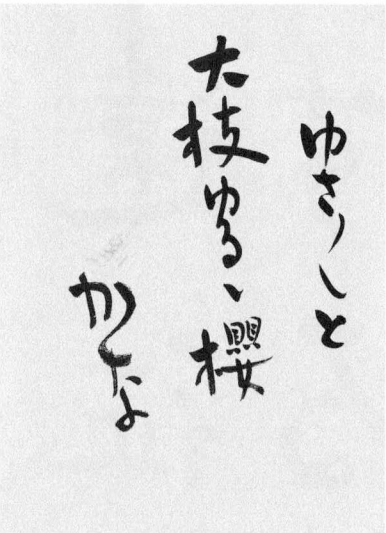 ゆさ〳〵と
大枝ゆるゝ櫻
かな